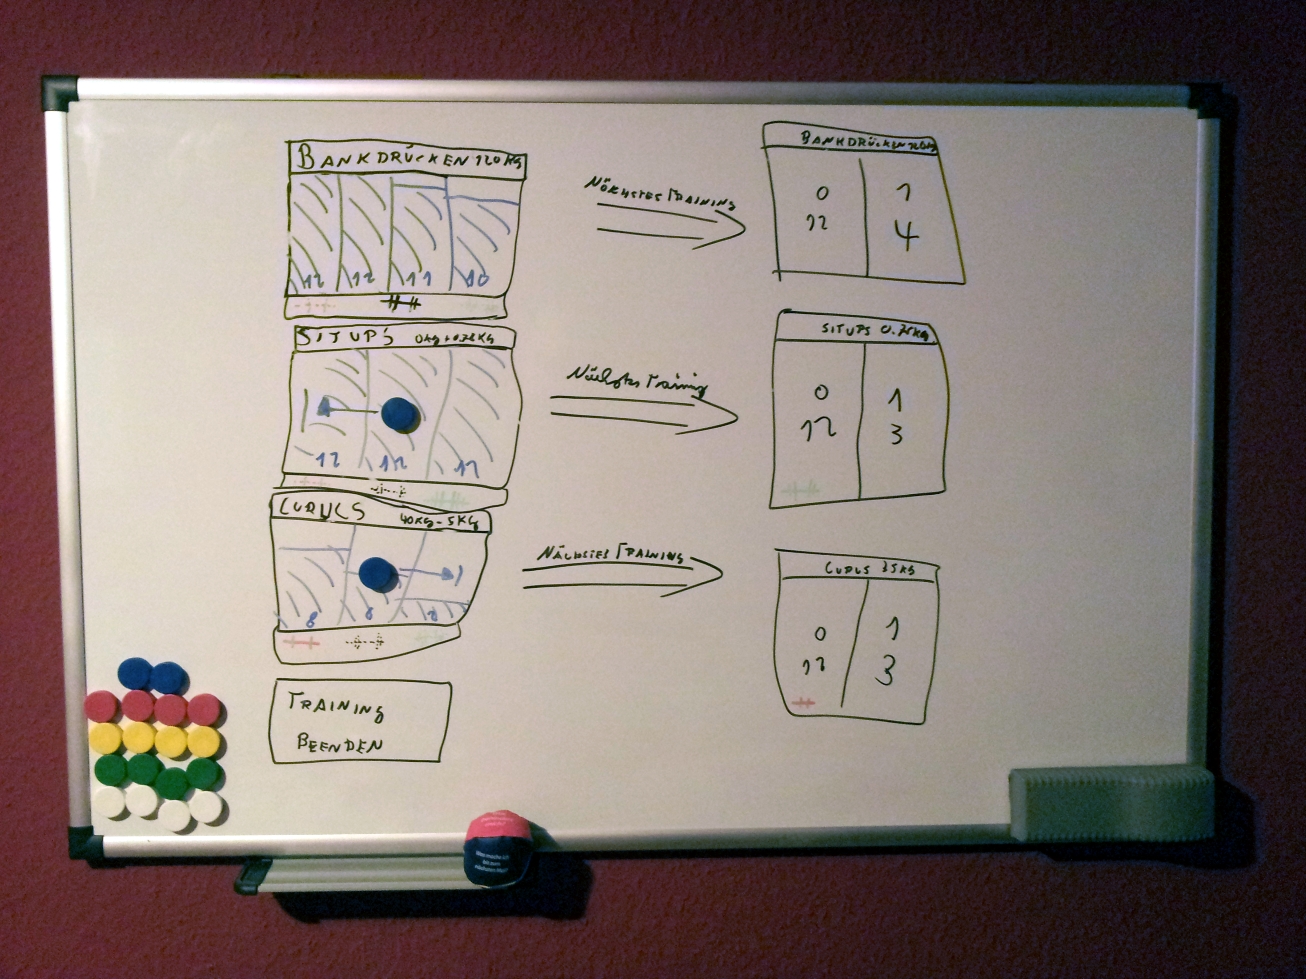 BANKDRÜCKEN 120KG
12 12 11 10
NÄCHSTES TRAINING
BANKDRÜCKEN 120KG
0 1
12 4
SITUPS 0KG+0.75KG
12 12 12
Nächstes Training
SITUPS 0.75KG
0 1
12 3
CURLS 40KG-5KG
8 8
NÄCHSTES TRAINING
CURLS 35KG
0 1
12 3
TRAINING
BEENDEN
Was mache ich
bis zum
nächsten Mal?